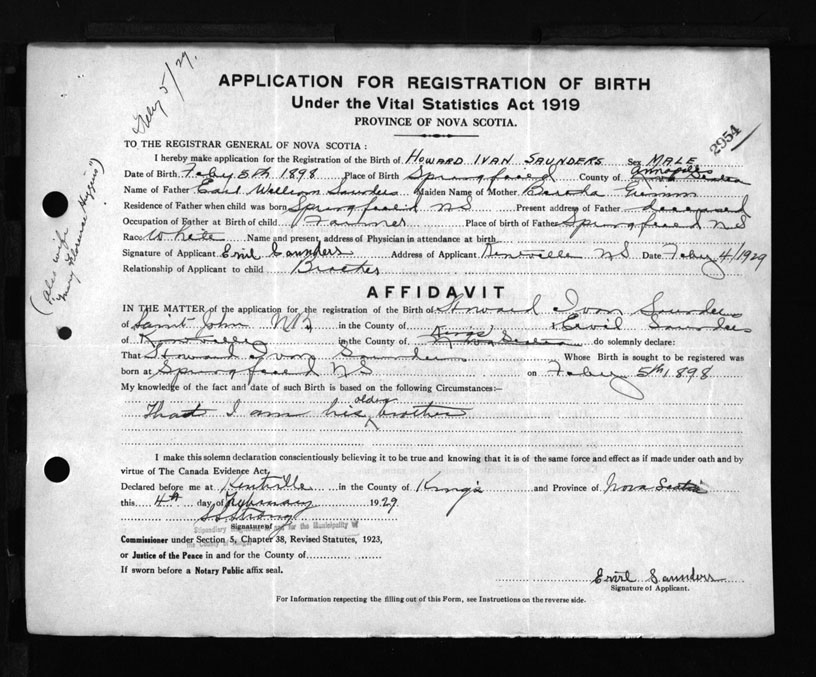 Feby 5/29.
APPLICATION FOR REGISTRATION OF BIRTH
Under the Vital Statistics Act 1919
PROVINCE OF NOVA SCOTIA.
2954
TO THE REGISTRAR GENERAL OF NOVA SCOTIA:
I hereby make application for the Registration of the Birth of HOWARD IVAN SAUNDERS Sex MALE
Date of Birth Feby 5th 1898 Place of Birth Springfield County of Annapolis Nova Scotia
Name of Father Saunders Maiden Name of Mother
Residence of Father when child was born Springfield NS Present address of Father deceased
Occupation of Father at Birth of child Farmer Place of birth of Father Springfield NS
Race White Name and present address of Physician in attendance at birth
Signature of Applicant Saunders Address of Applicant Kentville NS Date Feby 4/1929
Relationship of Applicant to child Brother
(also wife
Higgins")
AFFIDAVIT
IN THE MATTER of the application for the registration of the Birth of Howard Ivan Saunders
of Saint John NB, in the County of Saunders
of Kentville in the County of Kings Nova Scotia do solemnly declare:
That Howard Ivan Saunders Whose Birth is sought to be registered was
born at Springfield NS on Feby 5th 1898
My knowledge of the fact and date of such Birth is based on the following Circumstances:—
That I am his older brother
I make this solemn declaration conscientiously believing it to be true and knowing that it is of the same force and effect as if made under oath and by
virtue of The Canada Evidence Act.
Declared before me at Kentville in the County of Kings and Province of Nova Scotia
this 4th day of February 1929
Strong
Signature of
Stipendiary for the Municipality of
Commissioner under Section 5, Chapter 38, Revised Statutes, 1923,
or Justice of the Peace in and for the County of
If sworn before a Notary Public affix seal.
Saunders
Signature of Applicant.
For Information respecting the filling out of this Form, see Instructions on the reverse side.